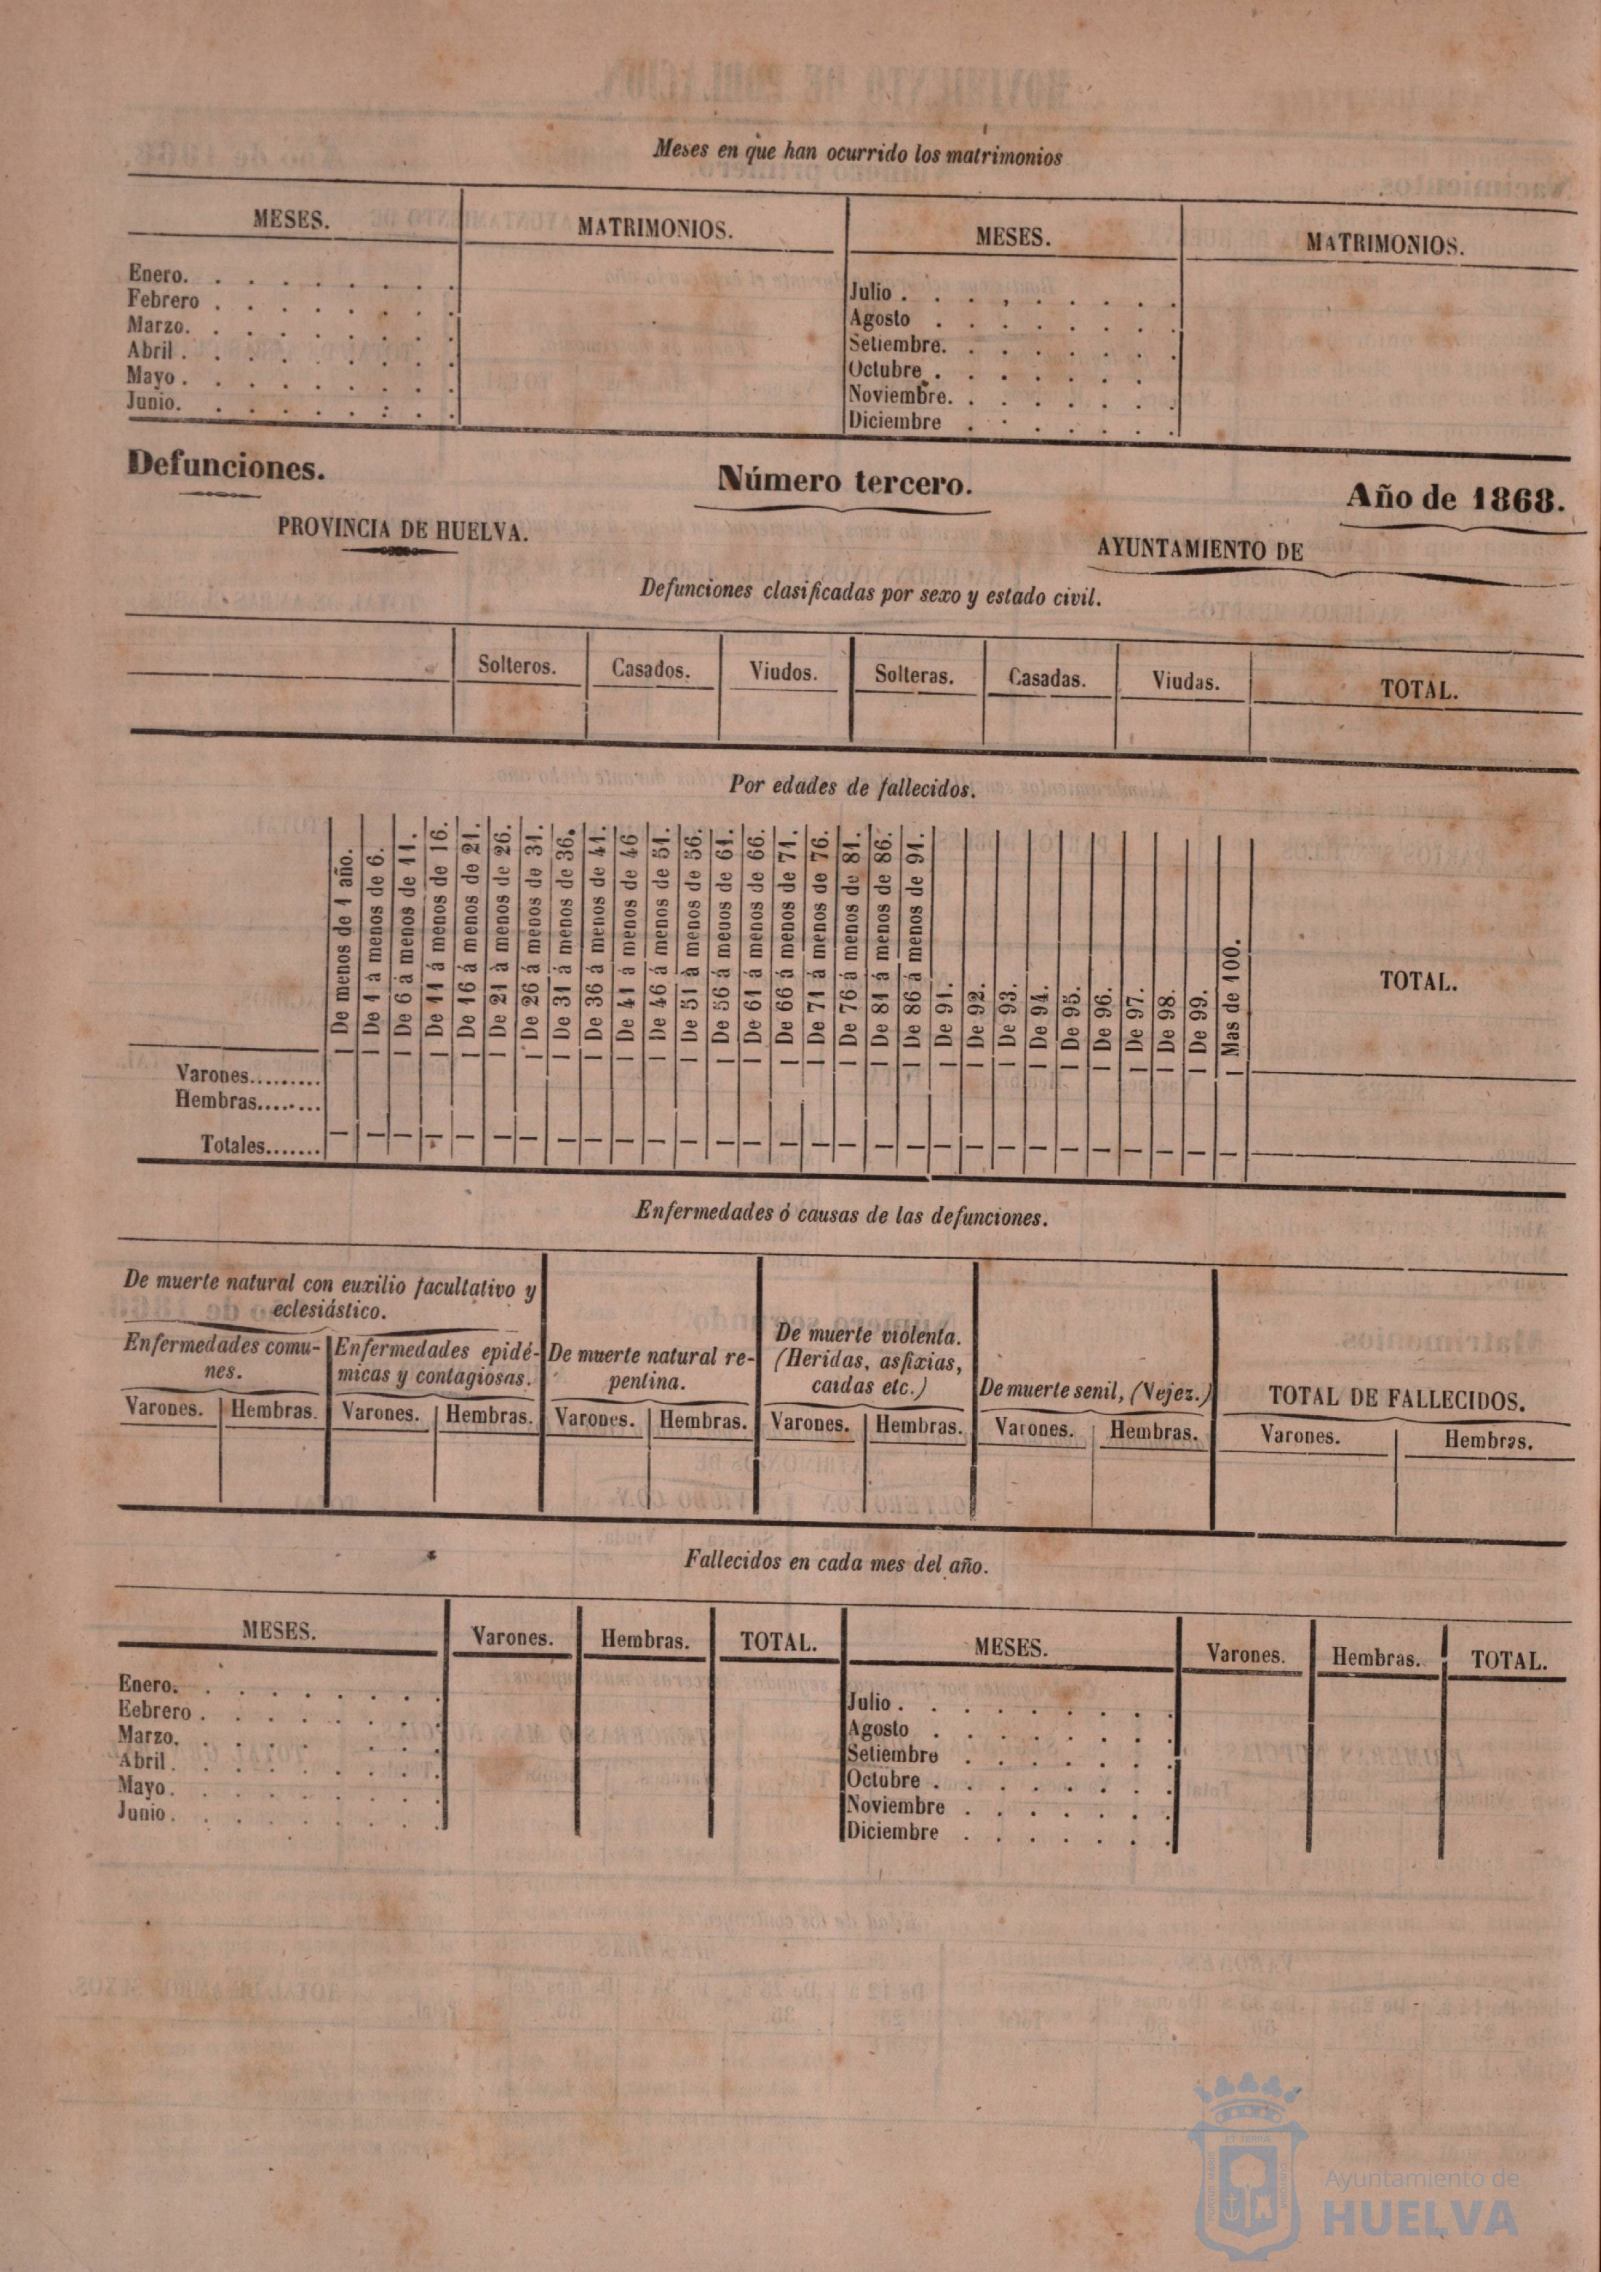 Meses en que han ocurrido los matrimonios
MESES. MATRIMONIOS. MESES. MATRIMONIOS.
Enero. . . . . . . . .
Febrero . . . . . . . .
Marzo. . . . . . . . .
Abril . . . . . . . . .
Mayo . . . . . . . . .
Junio. . . . . . . . .
Julio . . . , . . . . .
Agosto . . . . . . . .
Setiembre. . . . . . . .
Octubre . . . . . . . .
Noviembre. . . . . . . .
Diciembre . . . . . . .
Defunciones. Número tercero. Año de 1868.
PROVINCIA DE HUELVA. AYUNTAMIENTO DE
Defunciones clasificadas por sexo y estado civil.
Solteros. Casados. Viudos. Solteras. Casadas. Viudas. TOTAL.
Por edades de fallecidos.
De menos de 1 año.
De 1 à menos de 6.
De 6 à menos de 11.
De 11 à menos de 16.
De 16 à menos de 21.
De 21 à menos de 26.
De 26 á menos de 31.
De 31 à menos de 36.
De 36 á menos de 41.
De 41 à menos de 46
De 46 á menos de 51.
De 51 à menos de 56.
De 56 á menos de 61.
De 61 à menos de 66.
De 66 á menos de 71.
De 71 à menos de 76.
De 76 à menos de 81.
De 81 á menos de 86.
De 86 à menos de 91.
De 91.
De 92.
De 93.
De 94.
De 95.
De 96.
De 97.
De 98.
De 99.
Mas de 100.
TOTAL.
Varones.........
Hembras........
Totales.......
Enfermedades ó causas de las defunciones.
De muerte natural con euxilio facultativo y
eclesiástico.
Enfermedades comu-
nes.
Enfermedades epidé-
micas y contagiosas.
De muerte natural re-
pentina.
De muerte violenta.
(Heridas, asfixias,
caidas etc.)
De muerte senil, (Vejez.)
TOTAL DE FALLECIDOS.
Varones. Hembras. Varones. Hembras. Varones. Hembras. Varones. Hembras. Varones. Hembras. Varones. Hembras.
Fallecidos en cada mes del año.
MESES. Varones. Hembras. TOTAL. MESES. Varones. Hembras. TOTAL.
Enero. . . . . . . . .
Eebrero . . . . . . . .
Marzo. . . . . . . .
Abril . . . . . . . . .
Mayo . . . . . . . . .
Junio . . . . . . . . .
Julio . . . . . . . . .
Agosto . . . . . . . .
Setiembre . . . . . . .
Octubre . . . . . . . .
Noviembre . . . . . . .
Diciembre . . . . . . .
Ayuntamiento de
HUELVA